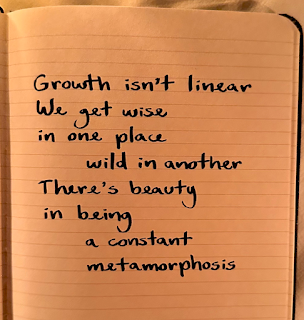 Growth isn't linear
We get wise
in one place
wild in another
There's beauty
in being
a constant
metamorphosis